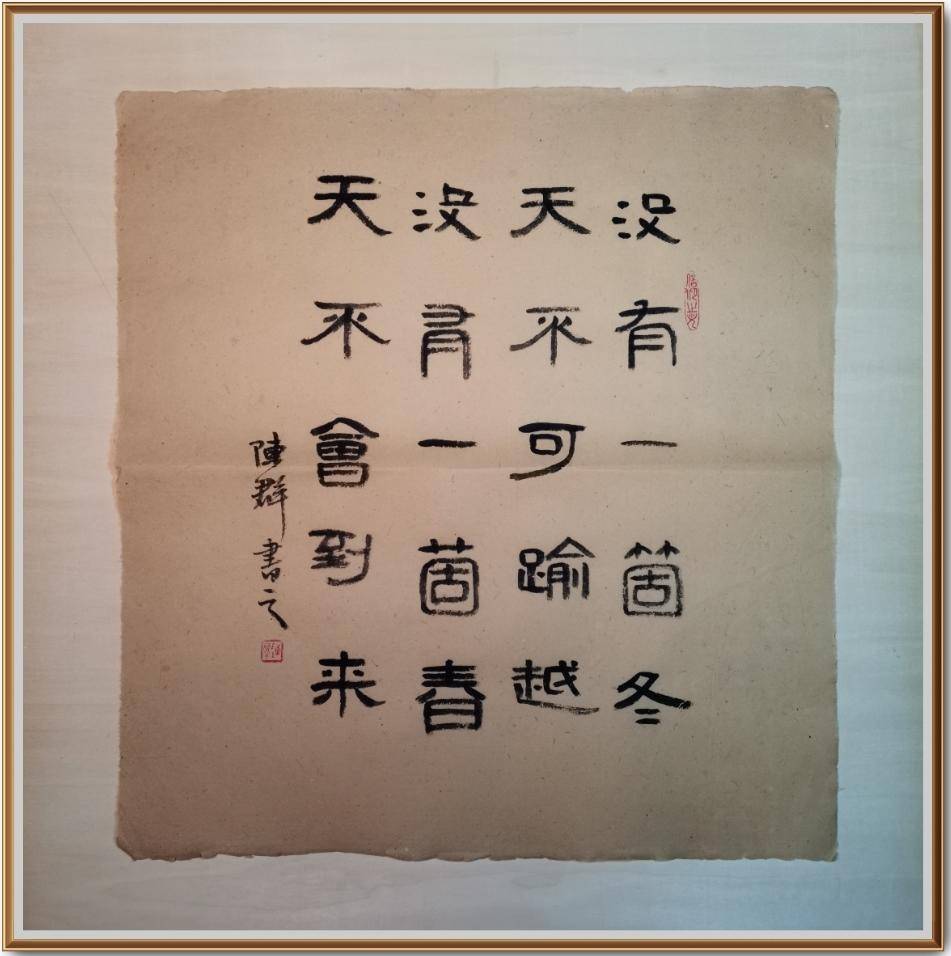 没有一箇冬
天不可踰越
没有一箇春
天不會到来
陳群書之